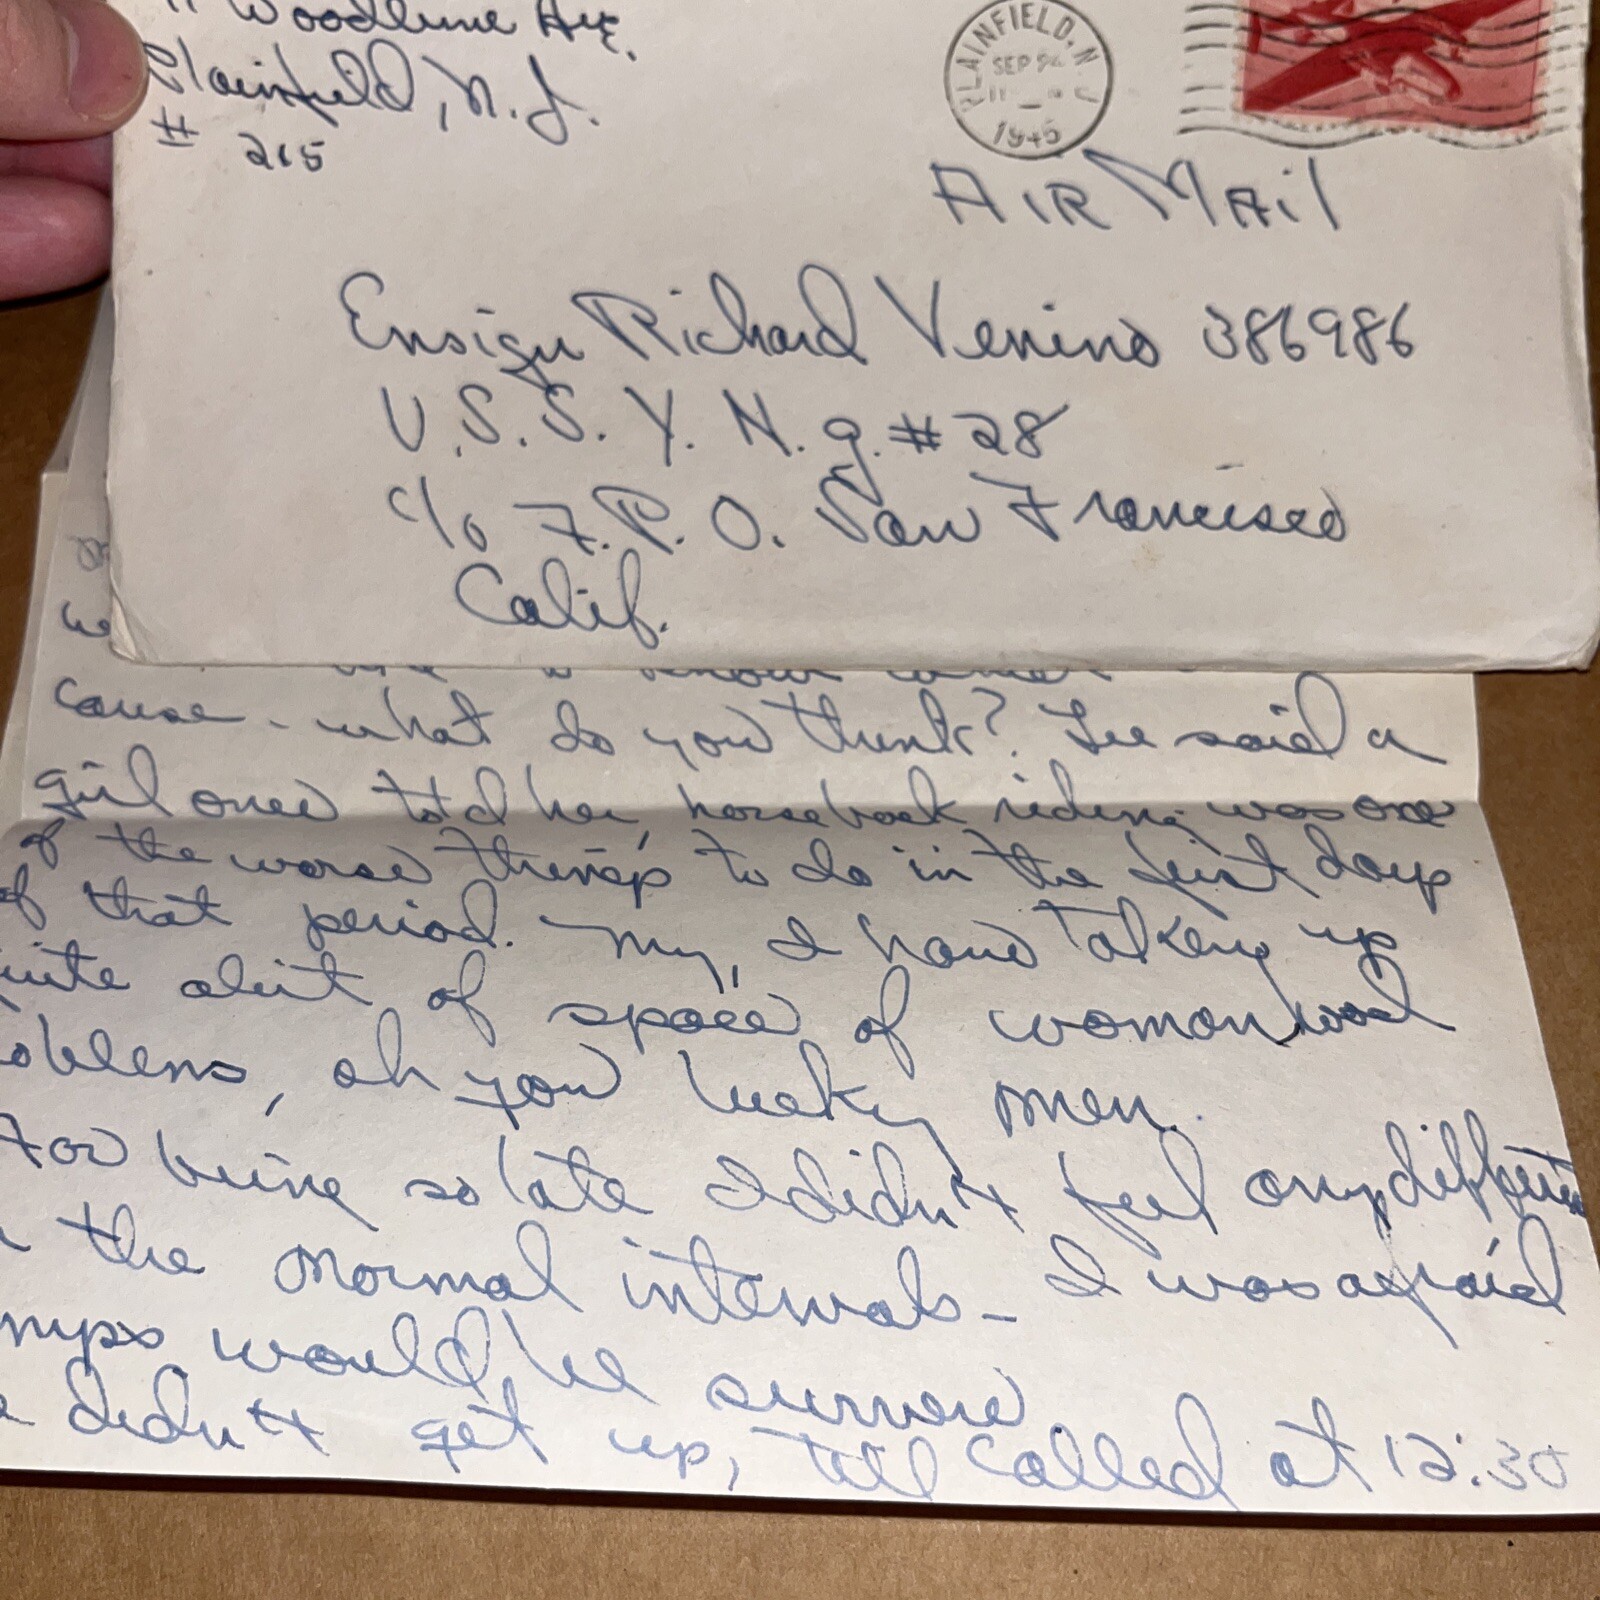 Woodbine Ave.
Plainfield, N.J.
# 215
PLAINFIELD, N.J.
SEP
11
1945
AIR MAil
Ensign Richard Venino 386986
U.S.S. Y. N. g. # 28
c/o F.P.O. San Francisco
Calif.
we
cause - what do you think? Lee said a
girl once told her, horseback riding was one
of the worse things to do in the first days
of that period. My, I have taken up
quite abit of space of womanhood
problems, oh you lucky men.
For being so late I didn't feel any different
the normal intervals - I was afraid
would be
didn't get up, till called at 12:30